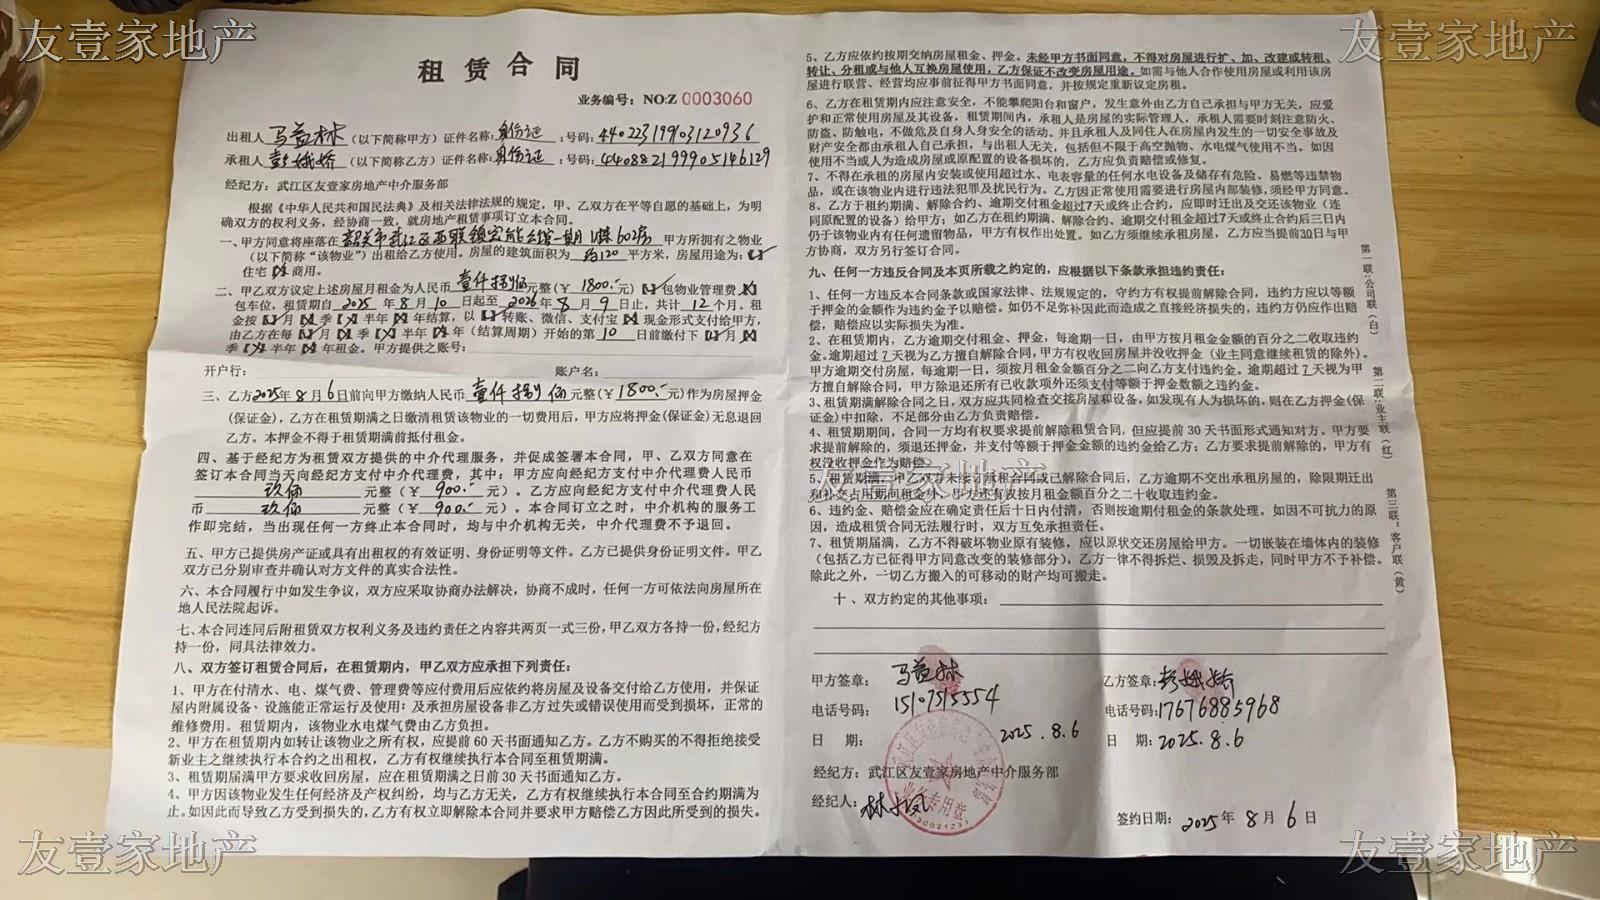 友壹家地产
友壹家地产
租赁合同
业务编号：NO:Z 0003060
出租人 马益林 （以下简称甲方）证件名称：身份证 ；号码：440223199103120936
承租人 彭娥娇 （以下简称乙方）证件名称：身份证 ；号码：440882199905146129
经纪方：武江区友壹家房地产中介服务部
根据《中华人民共和国民法典》及相关法律法规的规定，甲、乙双方在平等自愿的基础上，为明
确双方的权利义务，经协商一致，就房地产租赁事项订立本合同。
一、甲方同意将座落在 韶关市武江区西联镇 一期 602房 甲方所拥有之物业
（以下简称“该物业”）出租给乙方使用。房屋的建筑面积为 约120 平方米，房屋用途为：【✓】
住宅【✗】商用。
二、甲乙双方议定上述房屋月租金为人民币 壹仟捌佰 元整（￥ 1800.- 元）【✓】包物业管理费【✗】
包车位，租赁期自 2025 年 8 月 10 日起至 2026 年 8 月 9 日止，共计 12 个月。租
金按【✓】月【✗】季【✗】半年【✗】年结算，以【✓】转账、微信、支付宝【✗】现金形式支付给甲方，
由乙方在每【✓】月【✗】季【✗】半年【✗】年（结算周期）开始的第 10 日前缴付下【✓】月【✗】
季【✗】半年【✗】年租金。甲方提供之账号：
开户行： 账户名：
三、乙方 2025 年 8 月 6 日前向甲方缴纳人民币 壹仟捌佰 元整（￥ 1800.- 元）作为房屋押金
（保证金），乙方在租赁期满之日缴清租赁该物业的一切费用后，甲方应将押金（保证金）无息退回
乙方。本押金不得于租赁期满前抵付租金。
四、基于经纪方为租赁双方提供的中介代理服务，并促成签署本合同，甲、乙双方同意在
签订本合同当天向经纪方支付中介代理费，其中：甲方应向经纪方支付中介代理费人民币
玖佰 元整（￥ 900.- 元）。乙方应向经纪方支付中介代理费人民
币 玖佰 元整（￥ 900.- 元）。本合同订立之时，中介机构的服务工
作即完结，当出现任何一方终止本合同时，均与中介机构无关，中介代理费不予退回。
五、甲方已提供房产证或具有出租权的有效证明、身份证明等文件。乙方已提供身份证明文件。甲乙
双方已分别审查并确认对方文件的真实合法性。
六、本合同履行中如发生争议，双方应采取协商办法解决，协商不成时，任何一方可依法向房屋所在
地人民法院起诉。
七、本合同连同后附租赁双方权利义务及违约责任之内容共两页一式三份，甲乙双方各持一份，经纪方
持一份，同具法律效力。
八、双方签订租赁合同后，在租赁期内，甲乙双方应承担下列责任：
1、甲方在付清水、电、煤气费、管理费等应付费用后应依约将房屋及设备交付给乙方使用，并保证
屋内附属设备、设施能正常运行及使用；及承担房屋设备非乙方过失或错误使用而受到损坏，正常的
维修费用。租赁期内，该物业水电煤气费由乙方负担。
2、甲方在租赁期内如转让该物业之所有权，应提前60天书面通知乙方。乙方不购买的不得拒绝接受
新业主之继续执行本合约之出租权，乙方有权继续执行本合同至租赁期满。
3、租赁期届满甲方要求收回房屋，应在租赁期满之日前30天书面通知乙方。
4、甲方因该物业发生任何经济及产权纠纷，均与乙方无关，乙方有权继续执行本合同至合约期满为
止。如因此而导致乙方受到损失的，乙方有权立即解除本合同并要求甲方赔偿乙方因此所受到的损失。
5、乙方应依约按期交纳房屋租金、押金。未经甲方书面同意，不得对房屋进行扩、加、改建或转租、
转让、分租或与他人互换房屋使用，乙方保证不改变房屋用途，如需与他人合作使用房屋或利用该房
屋进行联营、经营均应事前征得甲方书面同意，并按规定重新议定房租。
6、乙方在租赁期内应注意安全，不能攀爬阳台和窗户，发生意外由乙方自己承担与甲方无关，应爱
护和正常使用房屋及其设备，租赁期间内，承租人是房屋的实际管理人，承租人需要时刻注意防火、
防盗、防触电，不做危及自身人身安全的活动。并且承租人及同住人在房屋内发生的一切安全事故及
财产安全都由承租人自己承担，与出租人无关，包括但不限于高空抛物、水电煤气使用不当。如因
使用不当或人为造成房屋或原配置的设备损坏的，乙方应负责赔偿或修复。
7、不得在承租的房屋内安装或使用超过水、电表容量的任何水电设备及储存有危险、易燃等违禁物
品，或在该物业内进行违法犯罪及扰民行为。乙方因正常使用需要进行房屋内部装修，须经甲方同意。
8、乙方于租约期满、解除合约、逾期交付租金超过7天或终止合约，应即时迁出及交还该物业（连
同原配置的设备）给甲方；如乙方在租约期满、解除合约、逾期交付租金超过7天或终止合约后三日内
仍于该物业内有任何遗留物品，甲方有权作出处置。如乙方须继续承租房屋，乙方应当提前30日与甲
方协商，双方另行签订合同。
九、任何一方违反合同及本页所载之约定的，应根据以下条款承担违约责任：
1、任何一方违反本合同条款或国家法律、法规规定的，守约方有权提前解除合同，违约方应以等额
于押金的金额作为违约金予以赔偿。如仍不足弥补因此而造成之直接经济损失的，违约方仍应作出赔
偿，赔偿应以实际损失为准。
2、在租赁期内，乙方逾期交付租金、押金，每逾期一日，由甲方按月租金金额的百分之二收取违约
金。逾期超过7天视为乙方擅自解除合同，甲方有权收回房屋并没收押金（业主同意继续租赁的除外）。
甲方逾期交付房屋，每逾期一日，须按月租金金额百分之二向乙方支付违约金。逾期超过7天视为甲
方擅自解除合同，甲方除退还所有已收款项外还须支付等额于押金数额之违约金。
3、租赁期满解除合同之日，双方应共同检查交接房屋和设备，如发现有人为损坏的，则在乙方押金（保
证金）中扣除，不足部分由乙方负责赔偿。
4、租赁期期间，合同一方均有权要求提前解除租赁合同，但应提前30天书面形式通知对方。甲方要
求提前解除的，须退还押金，并支付等额于押金金额的违约金给乙方；乙方要求提前解除的，甲方有
权没收押金作为赔偿。
友壹家地产
5、租赁期满，甲乙双方未接订承租合同或已解除合同后，乙方逾期不交出承租房屋的，除限期迁出
和补交占用期间租金外，甲方还有权按月租金额百分之二十收取违约金。
6、违约金、赔偿金应在确定责任后十日内付清，否则按逾期付租金的条款处理。如因不可抗力的原
因，造成租赁合同无法履行时，双方互免承担责任。
7、租赁期届满，乙方不得破坏物业原有装修，应以原状交还房屋给甲方。一切嵌装在墙体内的装修
（包括乙方已征得甲方同意改变的装修部分），乙方一律不得拆烂、损毁及拆走，同时甲方不予补偿。
除此之外，一切乙方搬入的可移动的财产均可搬走。
十、双方约定的其他事项：
第一联：公司联（白）
第二联：业主联（红）
第三联：客户联（黄）
甲方签章： 马益林 乙方签章： 彭娥娇
电话号码： 15107515554 电话号码：17676885968
日 期： 2025.8.6 日 期：2025.8.6
经纪方：武江区友壹家房地产中介服务部
业务专用章
经纪人：
签约日期： 2025 年 8 月 6 日
友壹家地产
友壹家地产